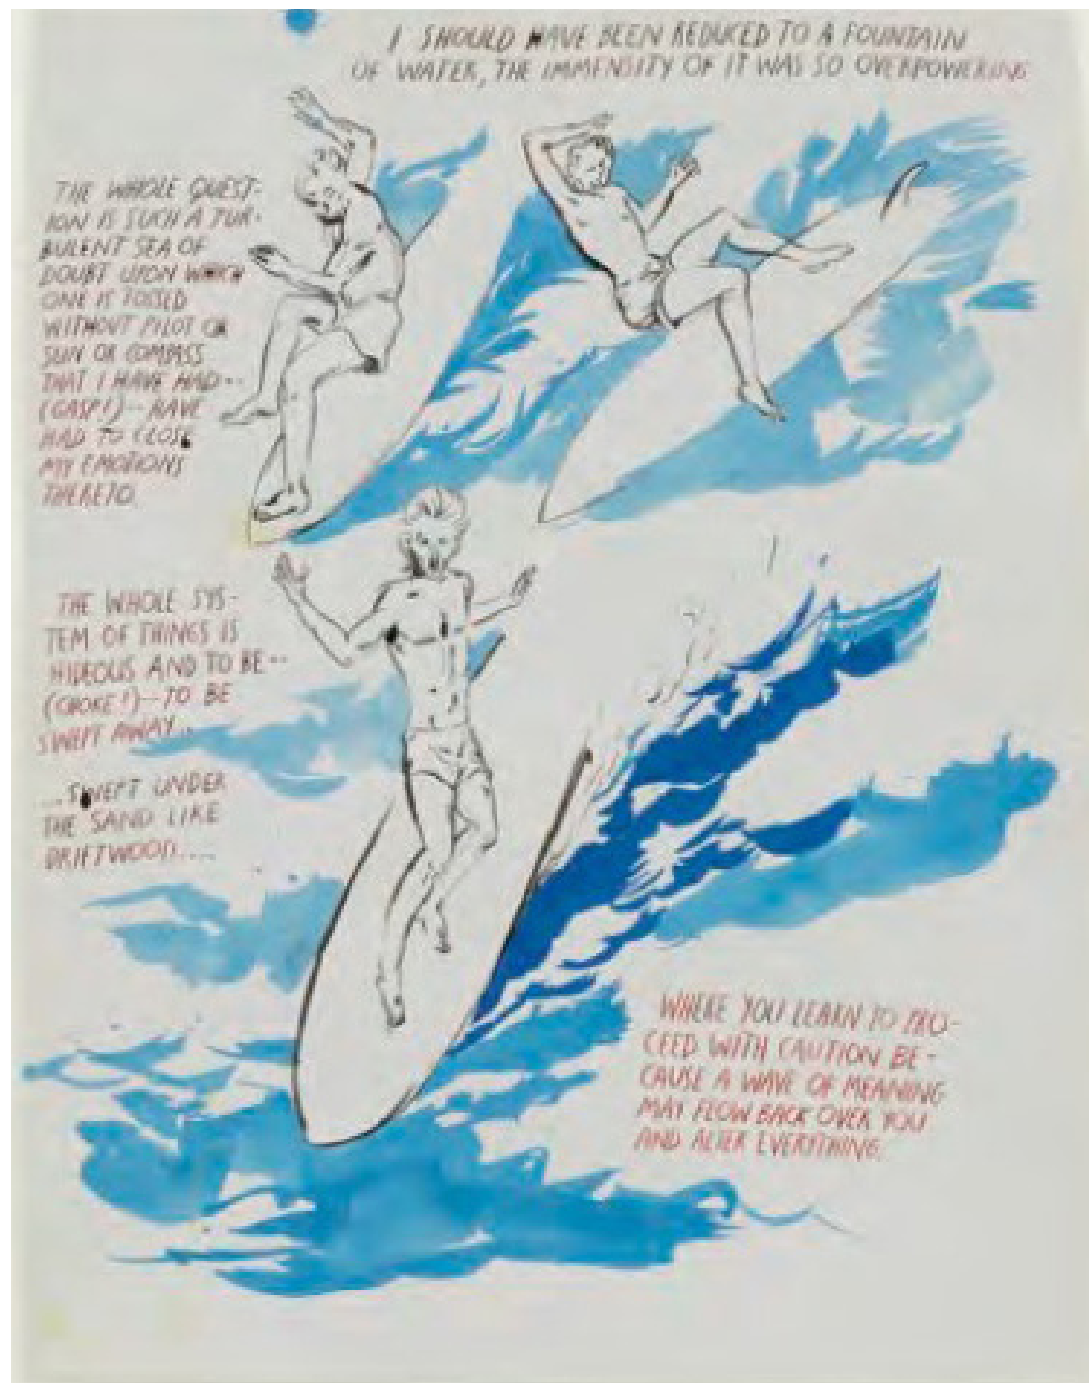 I SHOULD HAVE BEEN REDUCED TO A FOUNTAIN
OF WATER, THE IMMENSITY OF IT WAS SO OVERPOWERING
THE WHOLE QUEST-
ION IS SUCH A TUR-
BULENT SEA OF
DOUBT UPON WHICH
ONE IS TOSSED
WITHOUT PILOT OR
SUN OR COMPASS
THAT I HAVE HAD--
(GASP!)--HAVE
HAD TO CLOSE
MY EMOTIONS
THERETO.
THE WHOLE SYS-
TEM OF THINGS IS
HIDEOUS AND TO BE--
(CHOKE!)--TO BE
SWEPT AWAY...
...SWEPT UNDER
THE SAND LIKE
DRIFTWOOD....
WHERE YOU LEARN TO PRO-
CEED WITH CAUTION BE-
CAUSE A WAVE OF MEANING
MAY FLOW BACK OVER YOU
AND ALTER EVERYTHING.